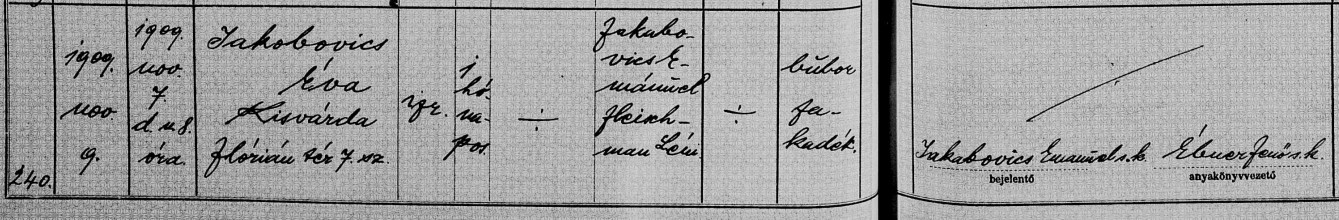 240.
1909.
nov.
9.
1909.
nov.
7.
d. u. 8.
óra.
Jakobovics
Éva
Kisvárda
Flórián tér 7. sz.
izr.
1
hó-
na-
pos
÷
Jakabo-
vics E-
mánuel
Fleisch-
man Léni
÷
bűbor
fa-
kadék.
Jakabovics Emanuel s. k.
bejelentő
Ébner Jenő s. k.
anyakönyvvezető